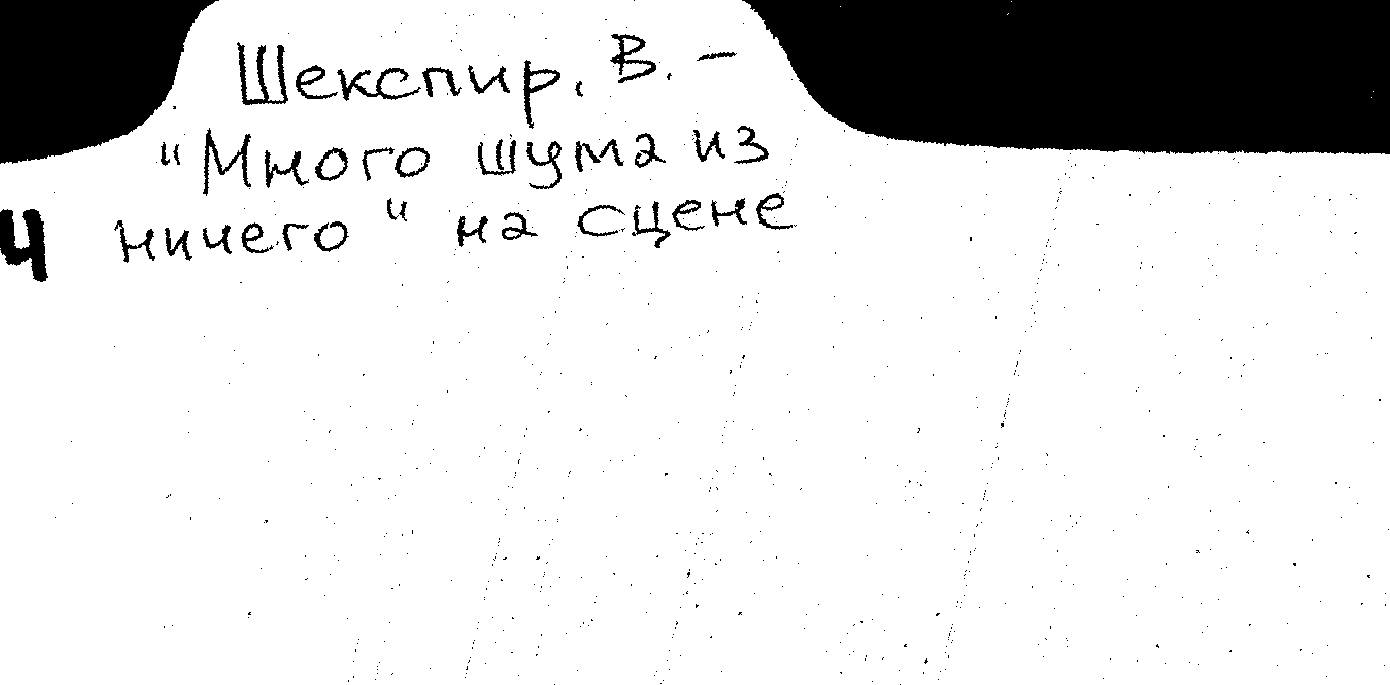 Шекспир, В. –
"Много шума из
ничего" на сцене